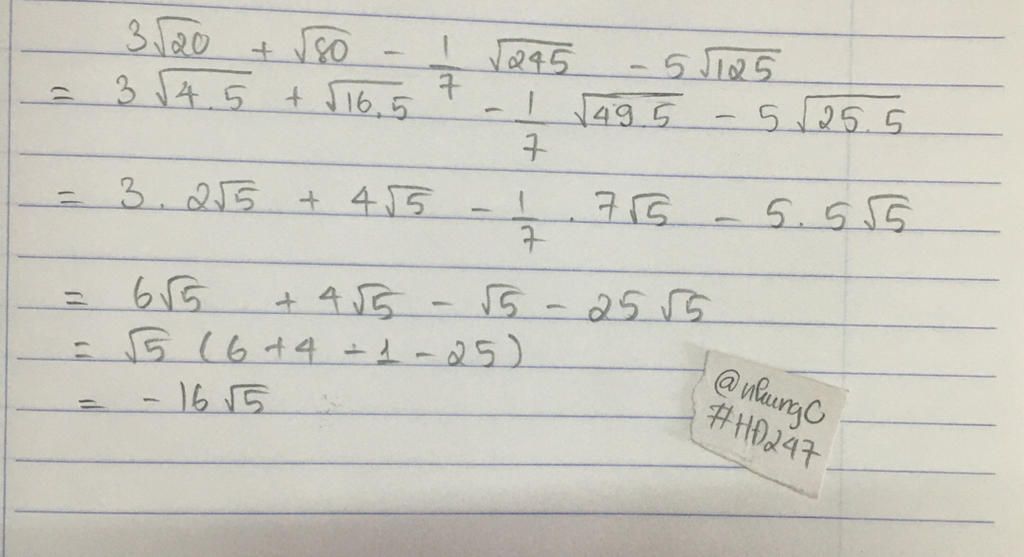 3√20 + √80 - 1/7 √245 - 5√125
= 3√4.5 + √16.5 - 1/7 √49.5 - 5√25.5
= 3.2√5 + 4√5 - 1/7 . 7√5 - 5.5√5
= 6√5 + 4√5 - √5 - 25√5
= √5 (6+4-1-25)
= -16√5
@nhungC
#HĐ247